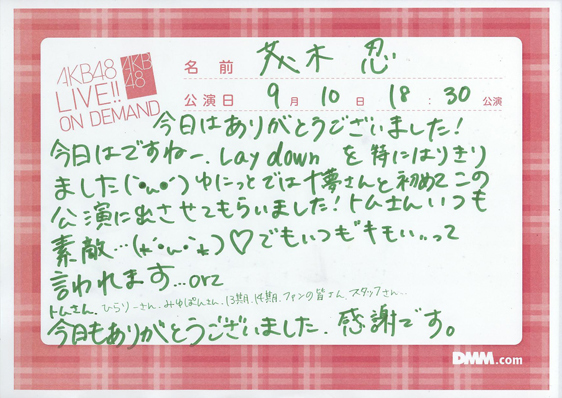 AKB48
LIVE!!
ON DEMAND
AKB
48
名前 茂木 忍
公演日 9月10日 18:30公演
今日はありがとうございました!
今日はですねー、Lay down を特にはりきり
ました(`•ω•´)ゆにっとでは十夢さんと初めてこの
公演に出させてもらいました!トムさんいつも
素敵…(*´•ω•`*)♡でもいつも"キモい"って
言われます…orz
トムさん、ひらりーさん、みゆぽんさん、13期、14期、ファンの皆さん、スタッフさん…
今日もありがとうございました、感謝です。
DMM.com